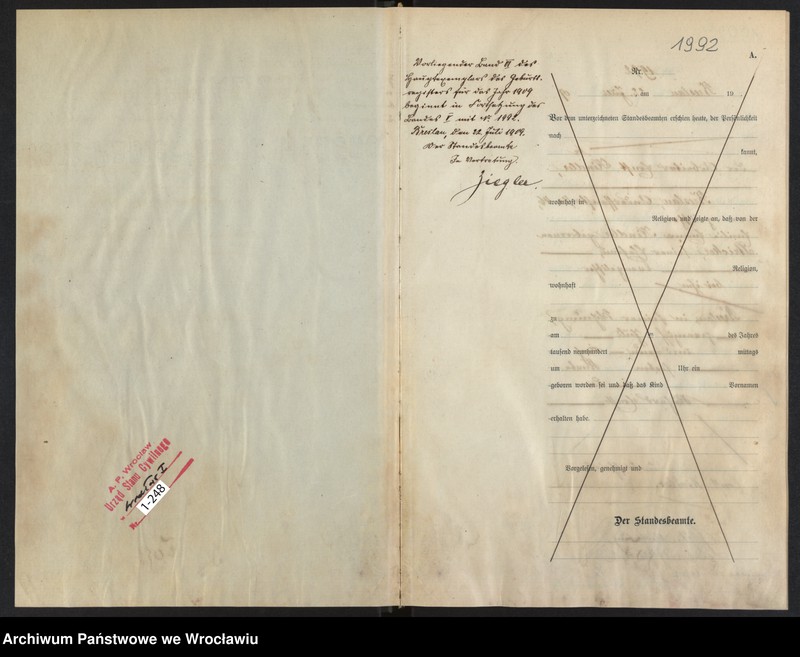 A. P. Wrocław
Urząd Stanu Cywilnego
Wrocław I
Nr.
1-248
1992
A.
Vorliegender Band VI des
Hauptexemplars des Geburts-
registers für das Jahr 1909
beginnt in Fortsetzung des
Bandes V mit Nr. 1992.
Breslau, den 22. Juli 1909.
Der Standesbeamte
In Vertretung.
Ziegler.
Nr.
am 19
Vor dem unterzeichneten Standesbeamten erschien heute, der Persönlichkeit
nach
kannt,
wohnhaft in
Religion, und zeigte an, daß von der
Religion,
wohnhaft
zu
am des Jahres
tausend neunhundert mittags
um Uhr ein
geboren worden sei und daß das Kind Vornamen
erhalten habe.
Vorgelesen, genehmigt und
Der Standesbeamte.
Archiwum Państwowe we Wrocławiu